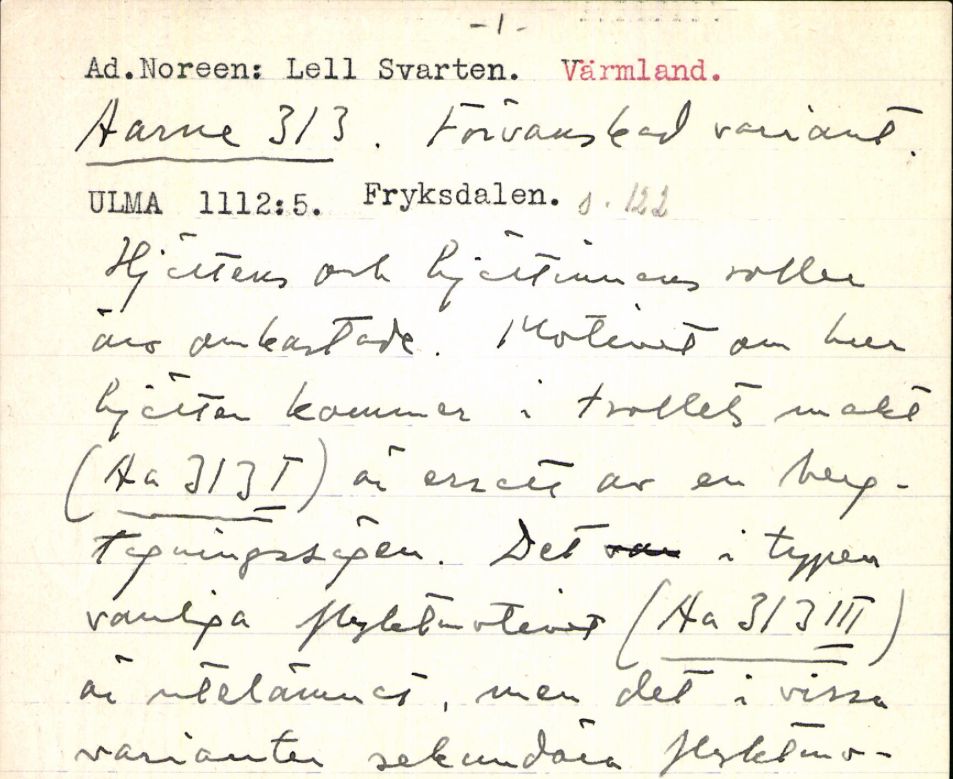 -1-
Ad.Noreen: Lell Svarten. Värmland.
Aarne 313. Förvanskad variant.
ULMA 1112:5. Fryksdalen. s. 122
Hjältens och hjältinnans roller
äro omkastade. Motivet om hur
hjälten kommer i trollets makt
(Aa 313 I) är ersatt av en berg-
tagningssägen. Det i typen
vanliga flyktmotivet (Aa 313 III)
är utelämnat, men det i vissa
varianter sekundära flyktmo-